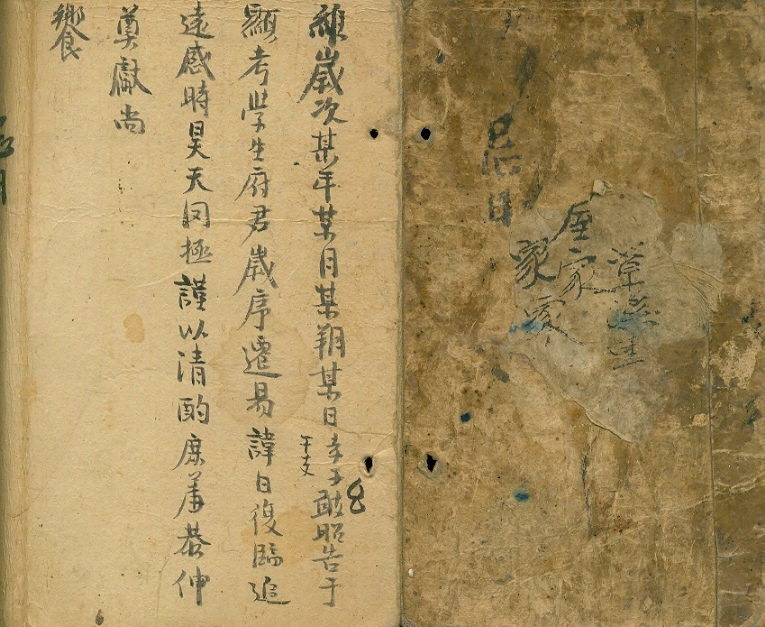 忌日
維歲次某年某月某朔某日孝子敢昭告于
干支
顯考學生府君歲序遷易諱日復臨追
遠感時昊天罔極謹以清酌庶羞恭伸
奠獻尚
饗